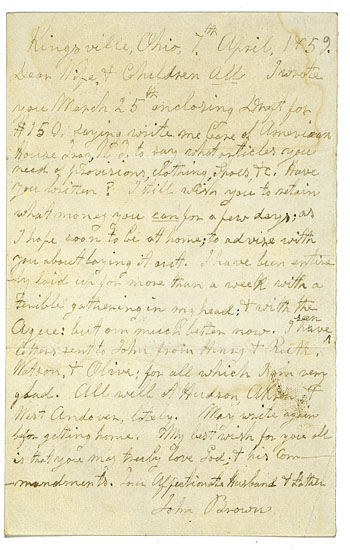 Kingsville, Ohio, 7th April, 1859.
Dear Wife, & Children All I wrote
you March 25th enclosing Draft for
$150, saying write me Care of American
House Troy, N. Y. to say what articles you
need of provisions, clothing, shoes, &c. Have
you written? I still wish you to retain
what money you can for a few days; as
I hope soon to be at home; to advise with
you about laying it out. I have been entire-
ly laid up for more than a week with a
terible gathering in my head; & with the
Ague: but am much better now. I have seen
letters sent to John from Henry & Ruth,
Watson, & Olive; for all which I am very
glad. All well at Hudson Akron &
West Andover, lately. May write again
before getting home. My best wish for you all
is that you may truly love God; & his Com-
mandments. Your Affectionate Husband & Father
John Brown